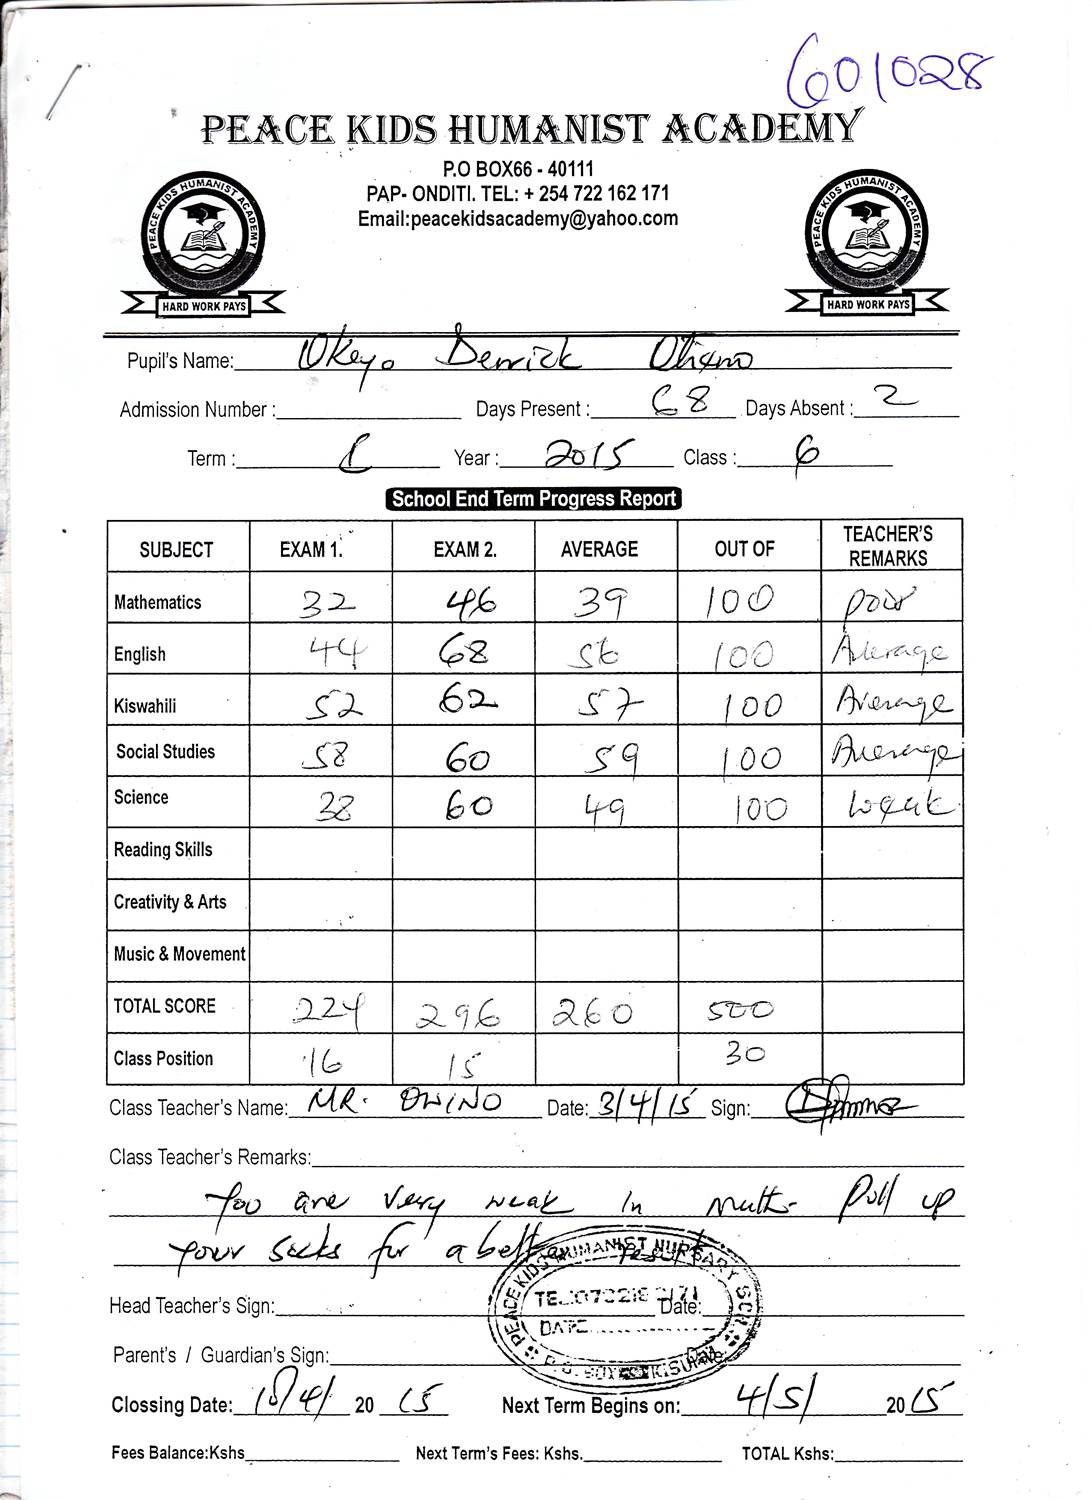 601028
PEACE KIDS HUMANIST ACADEMY
P.O BOX66 - 40111
PAP- ONDITI. TEL: + 254 722 162 171
Email:peacekidsacademy@yahoo.com
PEACE KIDS HUMANIST ACADEMY
HARD WORK PAYS
PEACE KIDS HUMANIST ACADEMY
HARD WORK PAYS
Pupil's Name: Okeyo Derrick Otieno
Admission Number : Days Present : 68 Days Absent : 2
Term : 1 Year : 2015 Class : 6
School End Term Progress Report
SUBJECT EXAM 1. EXAM 2. AVERAGE OUT OF TEACHER'S REMARKS
Mathematics 32 46 39 100 poor
English 44 68 56 100 Average
Kiswahili 52 62 57 100 Average
Social Studies 58 60 59 100 Average
Science 38 60 49 100 weak
Reading Skills
Creativity & Arts
Music & Movement
TOTAL SCORE 224 296 260 500
Class Position 16 15 30
Class Teacher's Name: MR. OWINO Date: 3/4/15 Sign:
Class Teacher's Remarks:
You are very weak in math- Pull up
your socks for a better result
PEACE KIDS HUMANIST NURSARY SCH
Head Teacher's Sign: Date:
DATE
Parent's / Guardian's Sign:
Clossing Date: 10/4/ 2015 Next Term Begins on: 4/5/ 2015
Fees Balance:Kshs Next Term's Fees: Kshs. TOTAL Kshs: